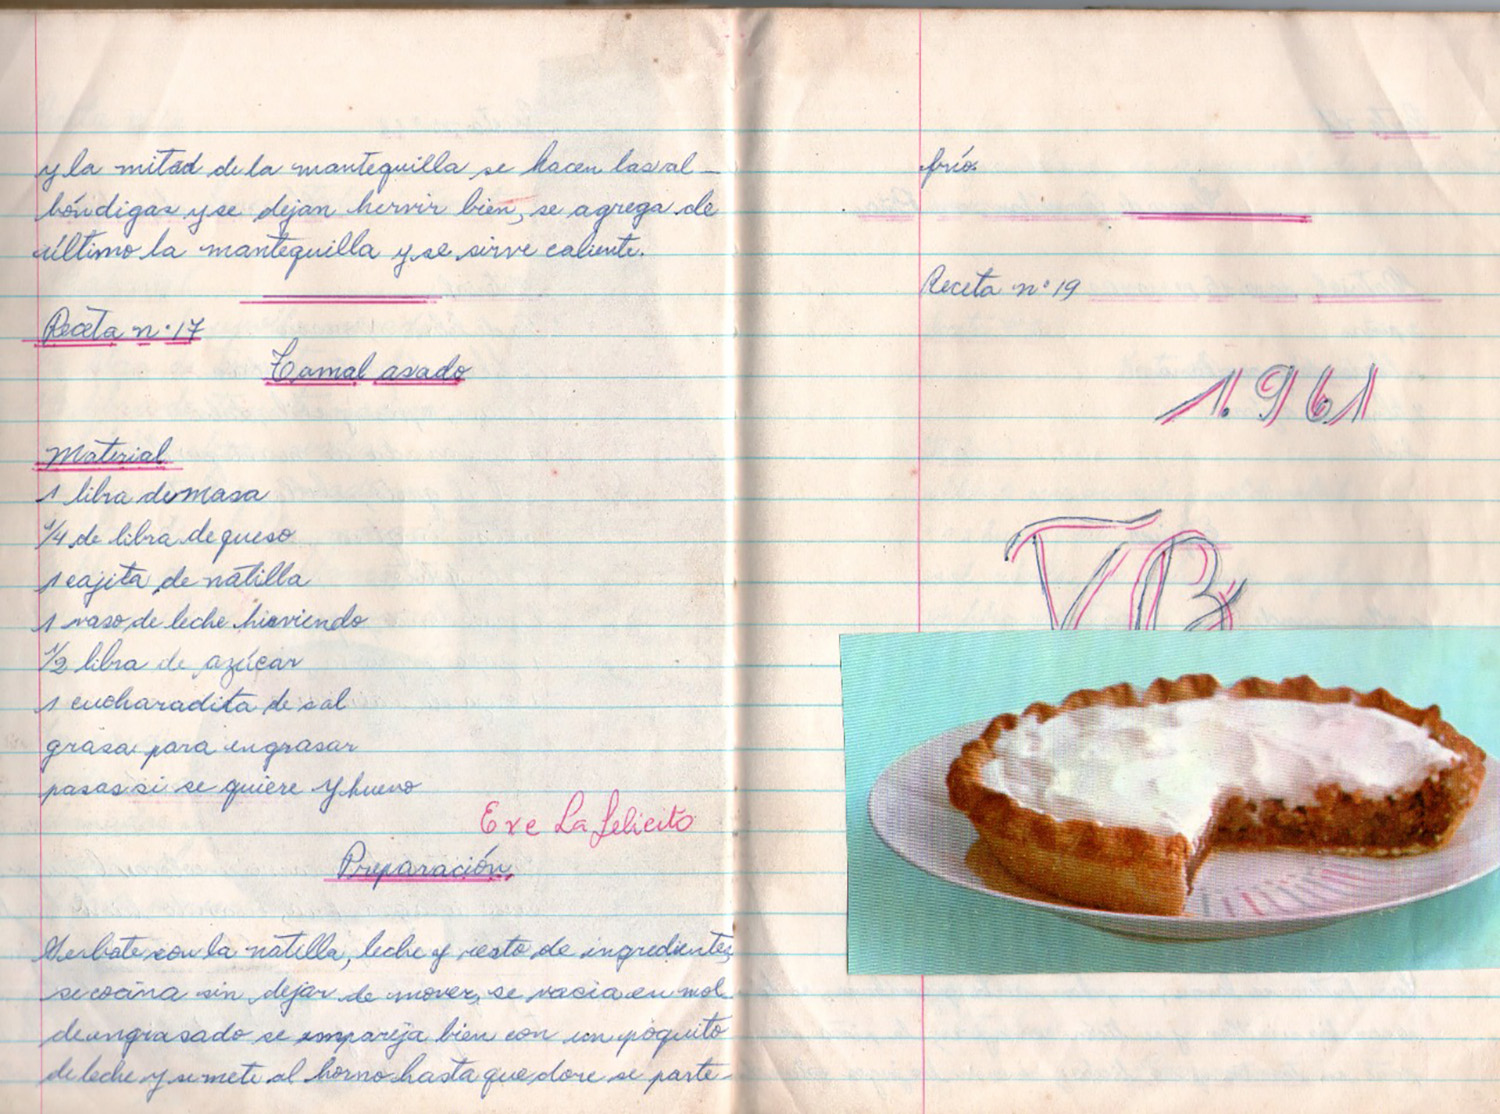 y la mitad de la mantequilla se hacen las al-
bóndigas y se dejan hervir bien, se agrega de
último la mantequilla y se sirve caliente.
Receta n° 17
Tamal asado
Material
1 libra de masa
1/4 de libra de queso
1 cajita de natilla
1 vaso de leche hirviendo
1/2 libra de azúcar
1 cucharadita de sal
grasa para engrasar
pasas si se quiere y huevo
Exe La felicito
Preparación
Se bate con la natilla, leche y resto de ingredientes,
se cocina sin dejar de mover, se vacía en mol
de engrasado se empareja bien con un poquito
de leche y se mete al horno hasta que dore se parte
frío.
Receta n° 19
1961
VB